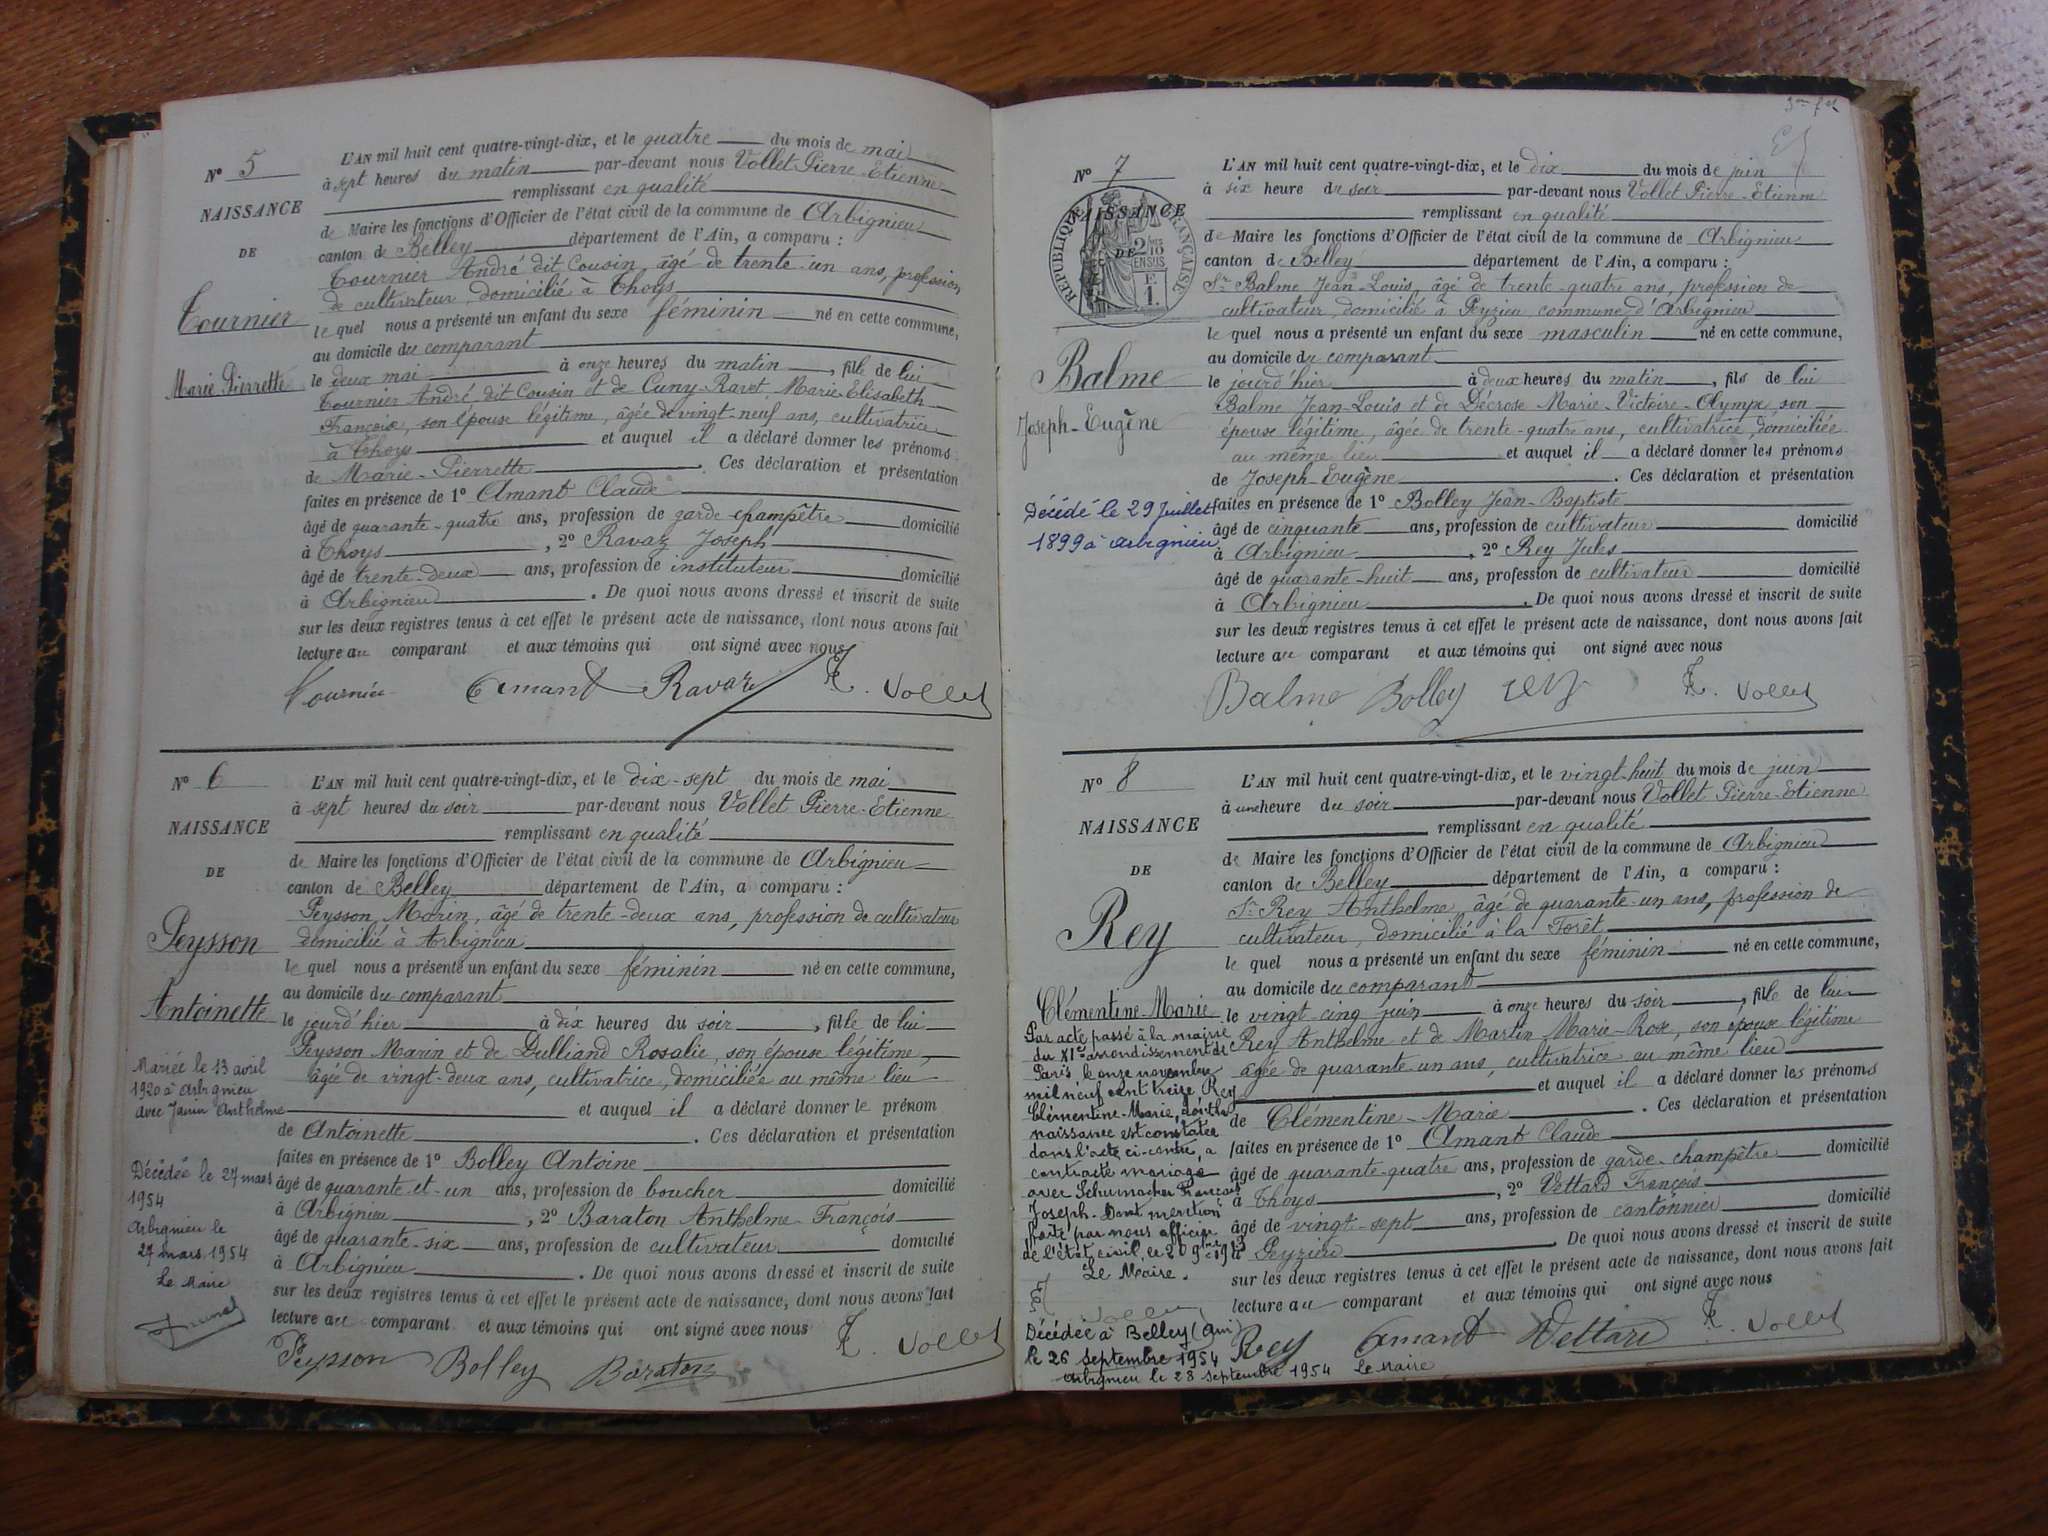 N° 5
NAISSANCE
DE
Tournier
Marie-Pierrette
L'AN mil huit cent quatre-vingt-dix, et le quatre du mois de mai
à sept heures du matin par-devant nous Vollet Pierre-Etienne
remplissant en qualité
de Maire les fonctions d'Officier de l'état civil de la commune de Arbignieu
canton de Belley département de l'Ain, a comparu :
Tournier André dit Cousin, âgé de trente-un ans, profession
de cultivateur, domicilié à Thoys
le quel nous a présenté un enfant du sexe féminin né en cette commune,
au domicile du comparant
le deux mai à onze heures du matin, fille de lui
Tournier André dit Cousin et de Cuny-Ravet, Marie Elisabeth
Françoise, son épouse légitime, âgée de vingt-neuf ans, cultivatrice
à Thoys et auquel il a déclaré donner les prénoms
de Marie-Pierrette. Ces déclaration et présentation
faites en présence de 1° Amant Claude
âgé de quarante-quatre ans, profession de garde champêtre domicilié
à Thoys, 2° Ravaz Joseph
âgé de trente-deux ans, profession de instituteur domicilié
à Arbignieu. De quoi nous avons dressé et inscrit de suite
sur les deux registres tenus à cet effet le présent acte de naissance, dont nous avons fait
lecture au comparant et aux témoins qui ont signé avec nous
Tournier Amant Ravaz Vollet
N° 6
NAISSANCE
DE
Peysson
Antoinette
Mariée le 13 avril
1920 à Arbignieu
avec Janin Anthelme
Décédée le 27 mars
1954
Arbignieu le
27 mars 1954
Le Maire
L'AN mil huit cent quatre-vingt-dix, et le dix-sept du mois de mai
à sept heures du soir par-devant nous Vollet Pierre-Etienne
remplissant en qualité
de Maire les fonctions d'Officier de l'état civil de la commune de Arbignieu
canton de Belley département de l'Ain, a comparu :
Peysson, Marin, âgé de trente-deux ans, profession de cultivateur
domicilié à Arbignieu
le quel nous a présenté un enfant du sexe féminin né en cette commune,
au domicile du comparant
le jourd'hier à dix heures du soir, fille de lui
Peysson Marin et de Dulliand Rosalie, son épouse légitime,
âgée de vingt-deux ans, cultivatrice, domiciliée au même lieu
et auquel il a déclaré donner le prénom
de Antoinette. Ces déclaration et présentation
faites en présence de 1° Bolley Antoine
âgé de quarante-et-un ans, profession de boucher domicilié
à Arbignieu, 2° Baraton Anthelme-François
âgé de quarante-six ans, profession de cultivateur domicilié
à Arbignieu. De quoi nous avons dressé et inscrit de suite
sur les deux registres tenus à cet effet le présent acte de naissance, dont nous avons fait
lecture au comparant et aux témoins qui ont signé avec nous
Peysson Bolley Baraton Vollet
N° 7
NAISSANCE
DE
RÉPUBLIQUE FRANÇAISE
2/10 EN SUS
F
1.
Balme
Joseph-Eugène
Décédé le 29 Juillet
1899 à Arbignieu
L'AN mil huit cent quatre-vingt-dix, et le dix du mois de juin
à six heure du soir par-devant nous Vollet Pierre-Etienne
remplissant en qualité
de Maire les fonctions d'Officier de l'état civil de la commune de Arbignieu
canton de Belley département de l'Ain, a comparu :
Sr Balme Jean-Louis, âgé de trente-quatre ans, profession de
cultivateur, domicilié à Peyzieu commune d'Arbignieu
le quel nous a présenté un enfant du sexe masculin né en cette commune,
au domicile du comparant
le jourd'hier à deux heures du matin, fils de lui
Balme Jean-Louis et de Décrose Marie-Victoire-Olympe, son
épouse légitime, âgée de trente-quatre ans, cultivatrice, domiciliée
au même lieu et auquel il a déclaré donner les prénoms
de Joseph-Eugène. Ces déclaration et présentation
faites en présence de 1° Bolley Jean-Baptiste
âgé de cinquante ans, profession de cultivateur domicilié
à Arbignieu, 2° Rey Jules
âgé de quarante-huit ans, profession de cultivateur domicilié
à Arbignieu. De quoi nous avons dressé et inscrit de suite
sur les deux registres tenus à cet effet le présent acte de naissance, dont nous avons fait
lecture au comparant et aux témoins qui ont signé avec nous
Balme Bolley Rey Vollet
N° 8
NAISSANCE
DE
Rey
Clémentine-Marie
Par acte passé à la mairie
du XIe arrondissement de
Paris le onze novembre
mil neuf cent treize Rey
Clémentine-Marie, dont la
naissance est constatée
dans l'acte ci-contre, a
contracté mariage
avec Schumacker François
Joseph. Dont mention
faite par nous officier
de l'état civil, le 20 9bre 1913
Le Maire.
Vollet
Décédée à Belley (Ain)
le 26 septembre 1954
Arbignieu le 28 septembre 1954 Le Maire
L'AN mil huit cent quatre-vingt-dix, et le vingt-huit du mois de juin
à une heure du soir par-devant nous Vollet Pierre-Etienne
remplissant en qualité
de Maire les fonctions d'Officier de l'état civil de la commune de Arbignieu
canton de Belley département de l'Ain, a comparu :
Sr Rey Anthelme, âgé de quarante-un ans, profession de
cultivateur, domicilié à la Forêt
le quel nous a présenté un enfant du sexe féminin né en cette commune,
au domicile du comparant
le vingt-cinq juin à onze heures du soir, fille de lui
Rey Anthelme et de Martin Marie-Rose, son épouse légitime
âgée de quarante un ans, cultivatrice au même lieu
et auquel il a déclaré donner les prénoms
de Clémentine-Marie. Ces déclaration et présentation
faites en présence de 1° Amant Claude
âgé de quarante-quatre ans, profession de garde-champêtre domicilié
à Thoys, 2° Vettard François
âgé de vingt-sept ans, profession de cantonnier domicilié
à Peyzieu. De quoi nous avons dressé et inscrit de suite
sur les deux registres tenus à cet effet le présent acte de naissance, dont nous avons fait
lecture au comparant et aux témoins qui ont signé avec nous
Rey Amant Vettard Vollet